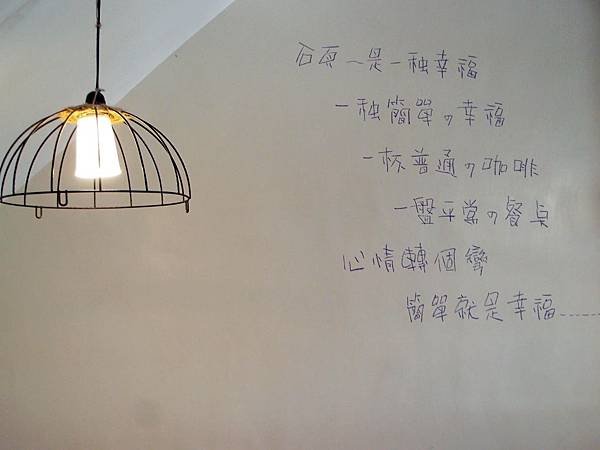 石頁～是一种幸福
一种簡單の幸福
一杯普通の咖啡
一盤平常の餐桌
心情轉個彎
簡單就是幸福........